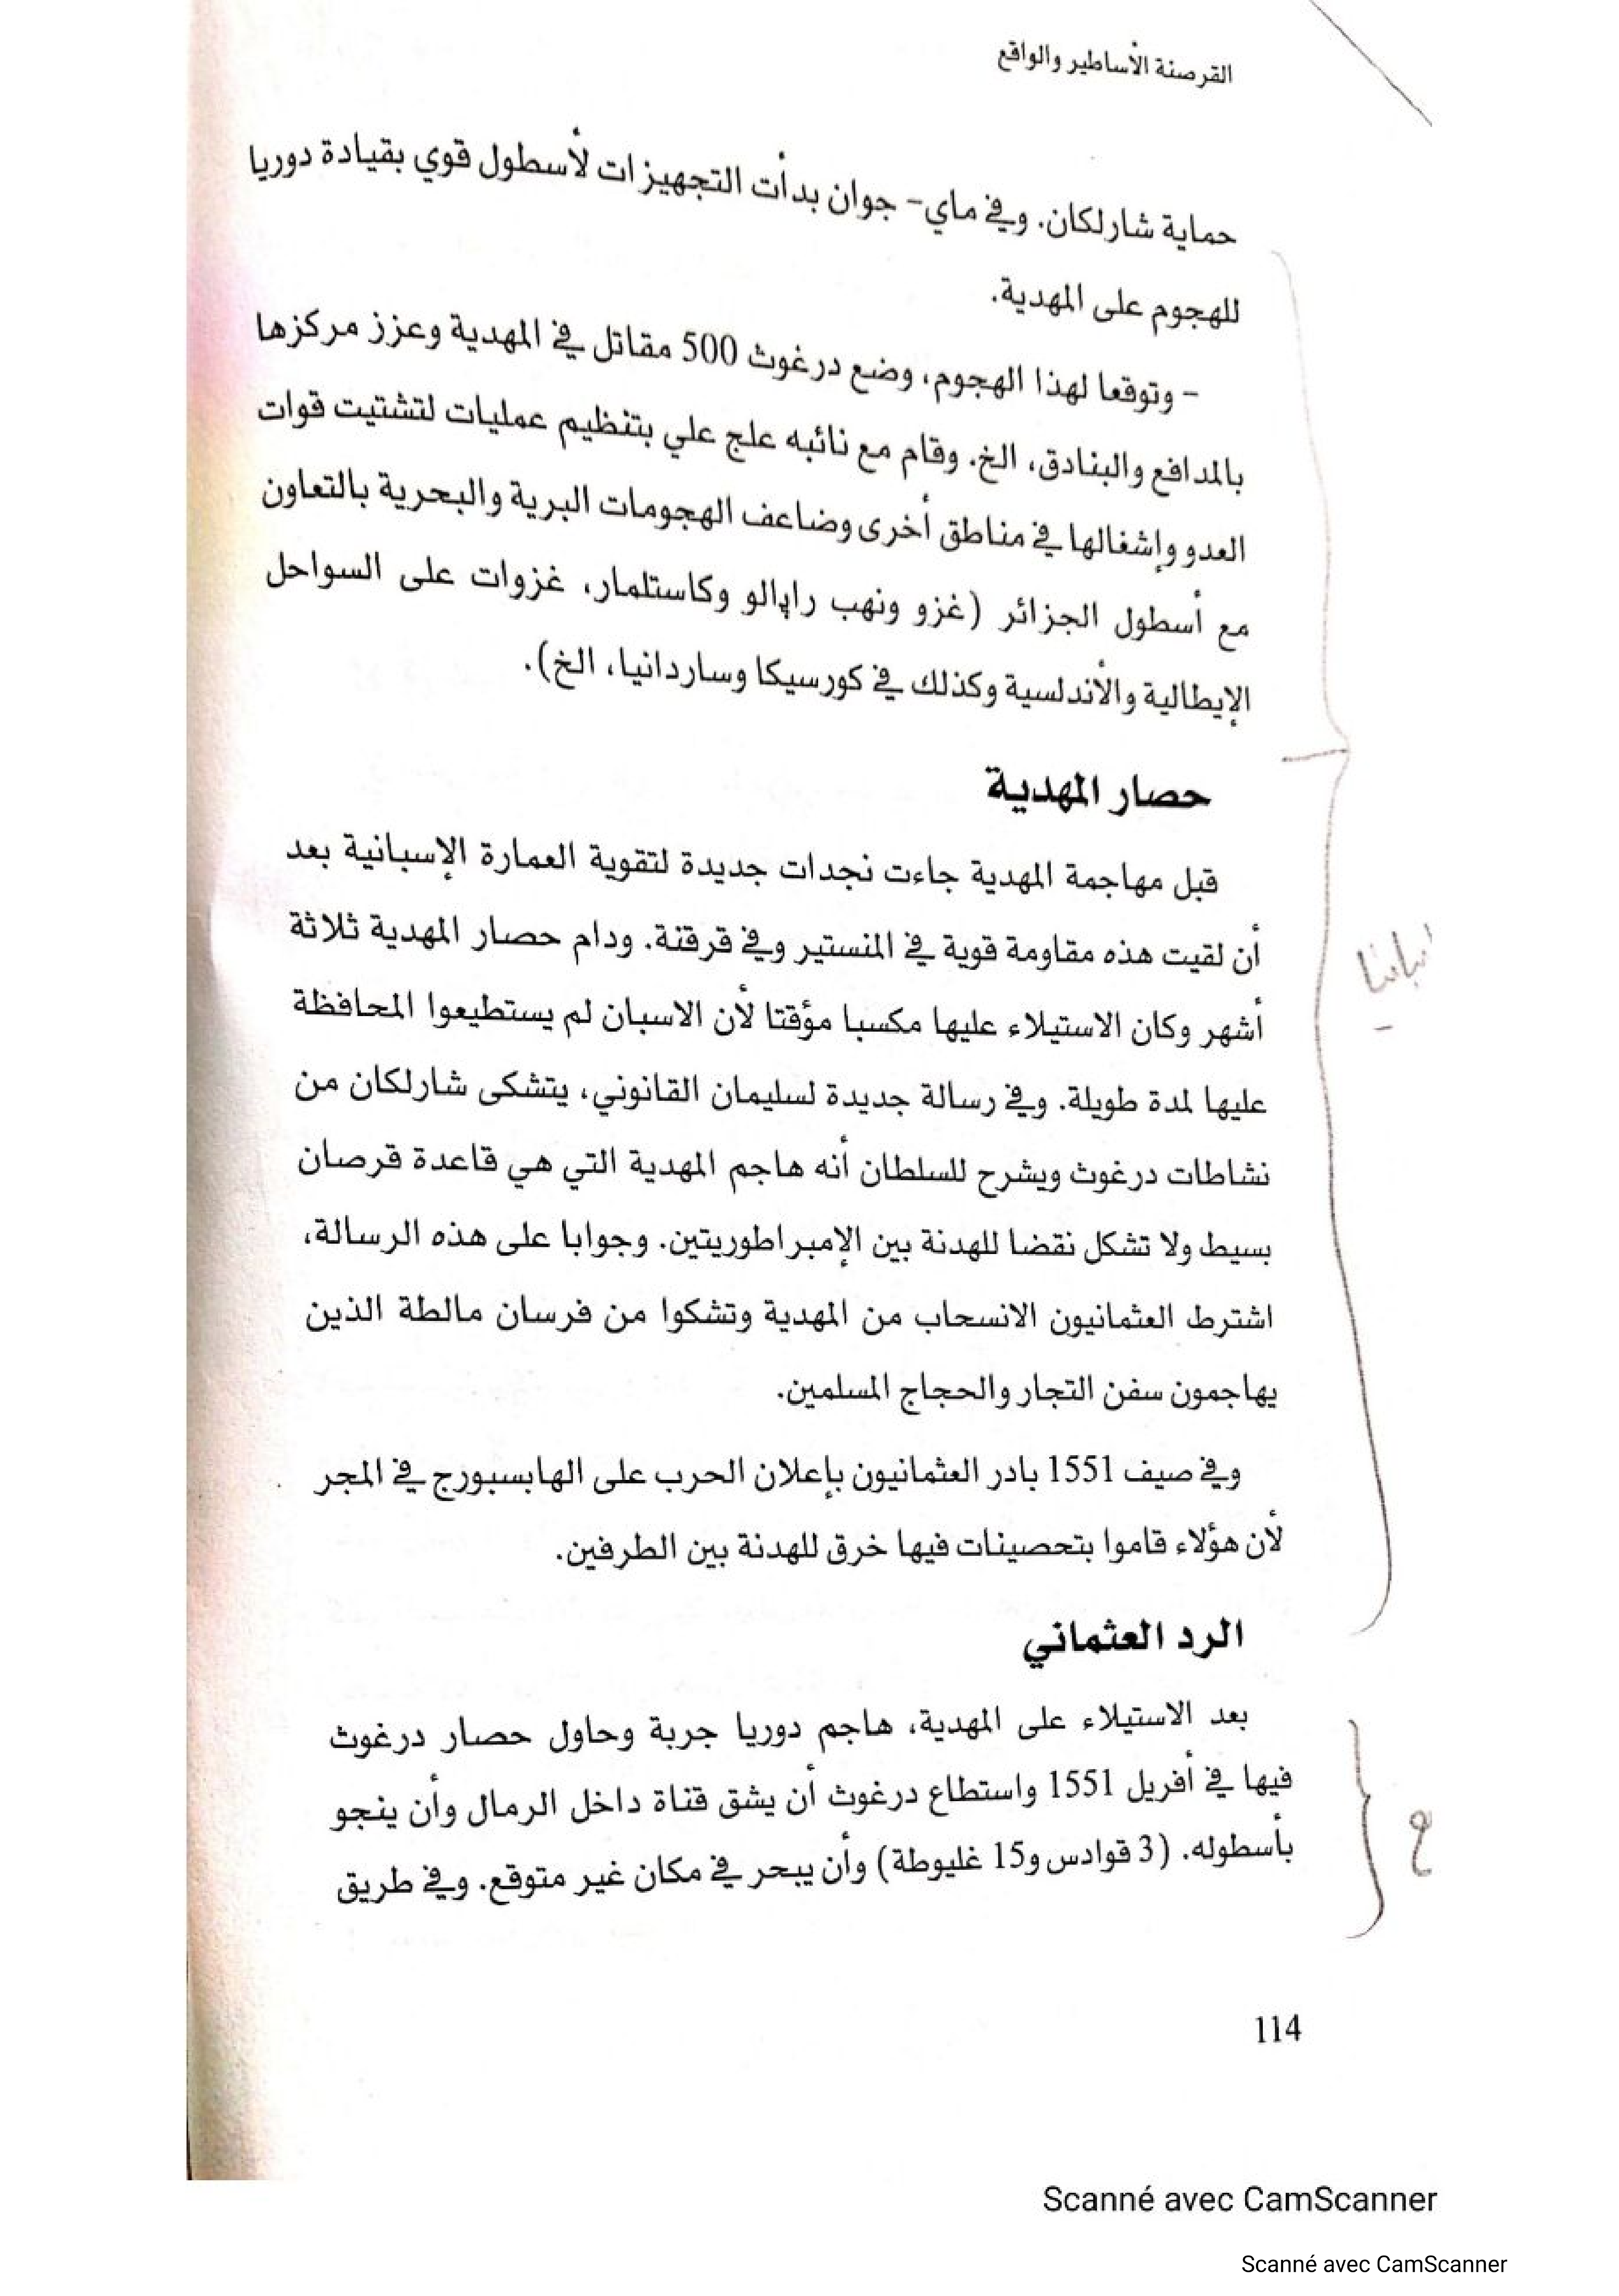 القرصنة الأساطير والواقع
حماية شارلكان. وفي ماي- جوان بدأت التجهيزات لأسطول قوي بقيادة دوريا
للهجوم على المهدية.
- وتوقعا لهذا الهجوم، وضع درغوث 500 مقاتل في المهدية وعزز مركزها
بالمدافع والبنادق، الخ. وقام مع نائبه علج علي بتنظيم عمليات لتشتيت قوات
العدو وإشغالها في مناطق أخرى وضاعف الهجومات البرية والبحرية بالتعاون
مع أسطول الجزائر (غزو ونهب راپالو وكاستلمار، غزوات على السواحل
الإيطالية والأندلسية وكذلك في كورسيكا وساردانيا، الخ).
حصار المهدية
قبل مهاجمة المهدية جاءت نجدات جديدة لتقوية العمارة الإسبانية بعد
أن لقيت هذه مقاومة قوية في المنستير وفي قرقنة. ودام حصار المهدية ثلاثة
أشهر وكان الاستيلاء عليها مكسبا مؤقتا لأن الاسبان لم يستطيعوا المحافظة
عليها لمدة طويلة. وفي رسالة جديدة لسليمان القانوني، يتشكى شارلكان من
نشاطات درغوث ويشرح للسلطان أنه هاجم المهدية التي هي قاعدة قرصان
بسيط ولا تشكل نقضا للهدنة بين الإمبراطوريتين. وجوابا على هذه الرسالة،
اشترط العثمانيون الانسحاب من المهدية وتشكوا من فرسان مالطة الذين
يهاجمون سفن التجار والحجاج المسلمين.
وفي صيف 1551 بادر العثمانيون بإعلان الحرب على الهابسبورج في المجر
لأن هؤلاء قاموا بتحصينات فيها خرق للهدنة بين الطرفين.
الرد العثماني
بعد الاستيلاء على المهدية، هاجم دوريا جربة وحاول حصار درغوث
فيها في أفريل 1551 واستطاع درغوث أن يشق قناة داخل الرمال وأن ينجو
بأسطوله. (3 قوادس و15 غليوطة) وأن يبحر في مكان غير متوقع. وفي طريق
114
Scanné avec CamScanner
Scanné avec CamScanner